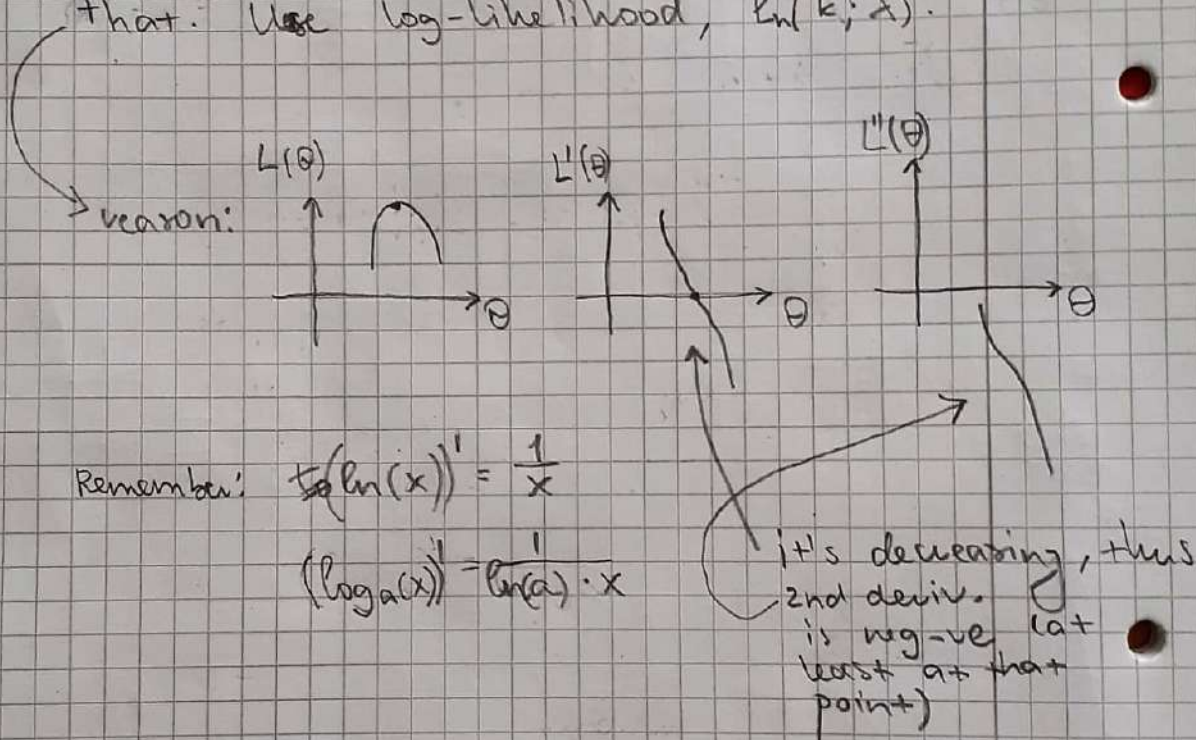 that. Use log-likelihood, ln(k; x).
L(θ)
L'(θ)
L''(θ)
reason:
θ
θ
θ
Remember: (ln(x))' = 1/x
(log_a(x))' = 1/(ln(a) · x)
it's decreasing, thus
2nd deriv.
is neg-ve (at
least at that
point)